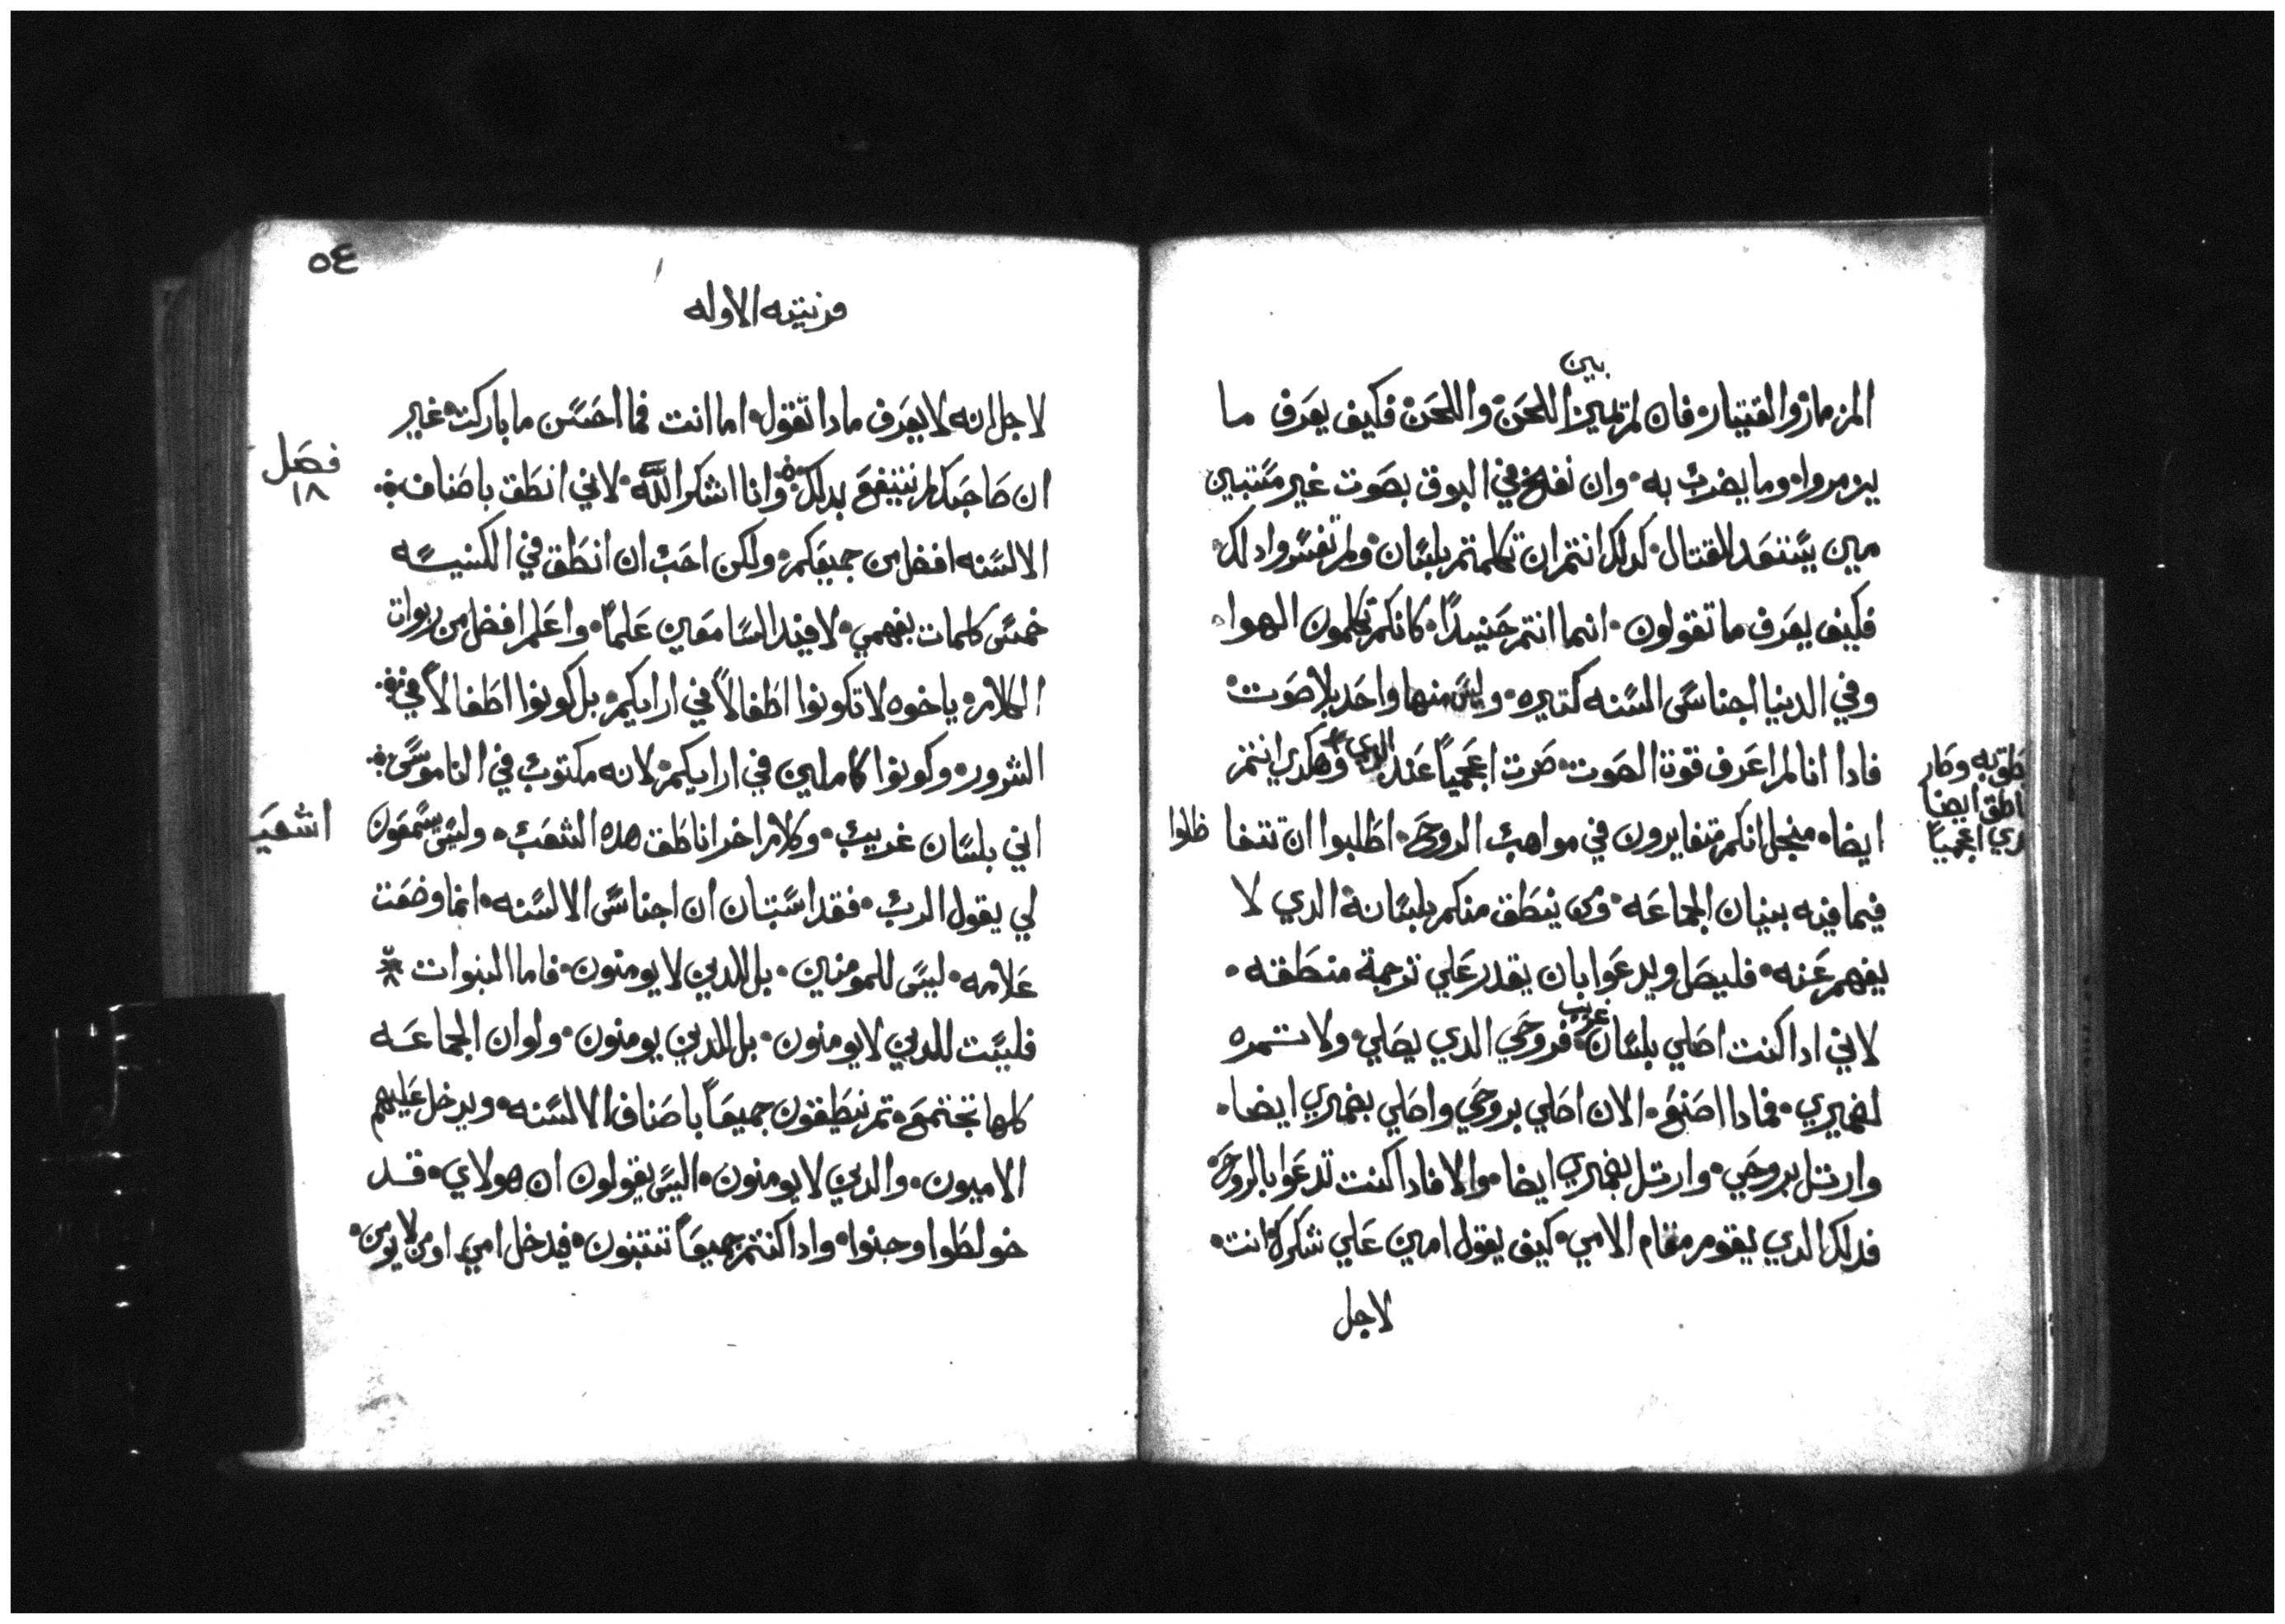 بين
المزمار والقيتار فان لم تميز اللحن واللحن فكيف يعرف ما
يزمروا وما يضرب به وان نفخ في البوق بصوت غير مستبين
مين يستعد للقتال كدلك انتم ان تكلمتم بلسان ولم تفسروا دلك
فكيف يعرف ما تقولون انما انتم حنيدًا كانكم تكلمون الهوا
وفي الدنيا اجناس السنه كتيره وليس منها واحد بلا صوت
فادا انا لم اعرف قوة الصوت صرت اعجمياً عند الدي وهكدي انتم
ايضا منجل انكم متغايرون في مواهب الروح اطلبوا ان تتفا ظلوا
فيما فيه بنيان الجماعه ومن ينطق منكم بلسانة الدي لا
يفهم عنه فليصل ويدعوا بان يقدر علي ترجمة منطقه
لاني ادا كنت اصلي بلسان غريب فروحي الدي يصلي ولا تمره
لضميري فمادا اصنع الان اصلي بروحي واصلي بضميري ايضا
وارتل بروحي وارتل بضميري ايضا والا فادا كنت تدعوا بالروح
فدلك الدي يقوم مقام الامي كيف يقول امين علي شكرك انت
لاجل
طق به وصار
اطق ايضا
دي اعجمياً
٥٤
قرنتيه الاوله
لاجل انه لا يعرف مادا تقول اما انت فما احسن ما باركت غير
ان صاحبك لم ينتفع بدلك وانا اشكر الله لاني انطق باصناف
الالسنه افضل من جميعكم ولكن احب ان انطق في الكنيسه
خمس كلمات بفهمي لافيد السامعين علماً واعلم افضل من ربوات
الكلام ياخوه لا تكونوا اطفالاً في ارايكم بل كونوا اطفالاً في
الشرور وكونوا كاملين في ارايكم لانه مكتوب في الناموس
اني بلسان غريب وكلام اخر اناطق هده الشعب وليس يسمعون
لي يقول الرب فقد استبان ان اجناس الالسنه انما وضعت
علامه ليس للمومنين بل للدين لا يومنون فاما النبوات
فليست للدين لا يومنون بل للدين يومنون ولو ان الجماعه
كلها تجتمع تم ينطقون جميعاً باصناف الالسنه ويدخل عليهم
الاميون والدين لا يومنون اليس يقولون ان هولاي قد
خولطوا وجنوا وادا كنتم جميعاً تتنبون فيدخل امي او من لا يومن
فصل
١٨
اشعيَ